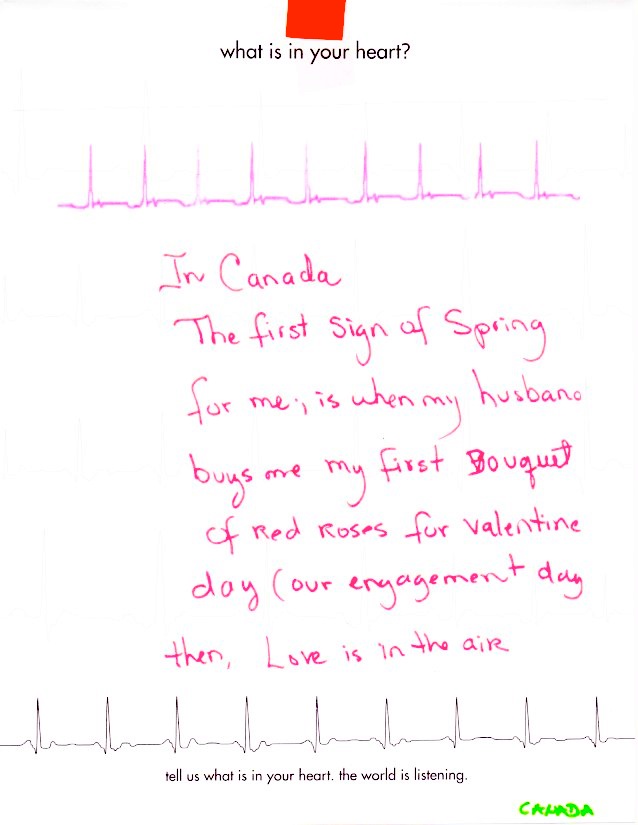 what is in your heart?
In Canada
The first sign of Spring
for me;, is when my husband
buys me my first Bouquet
of Red Roses for valentine
day (our engagement day
then, Love is in the aire
tell us what is in your heart. the world is listening.
CANADA